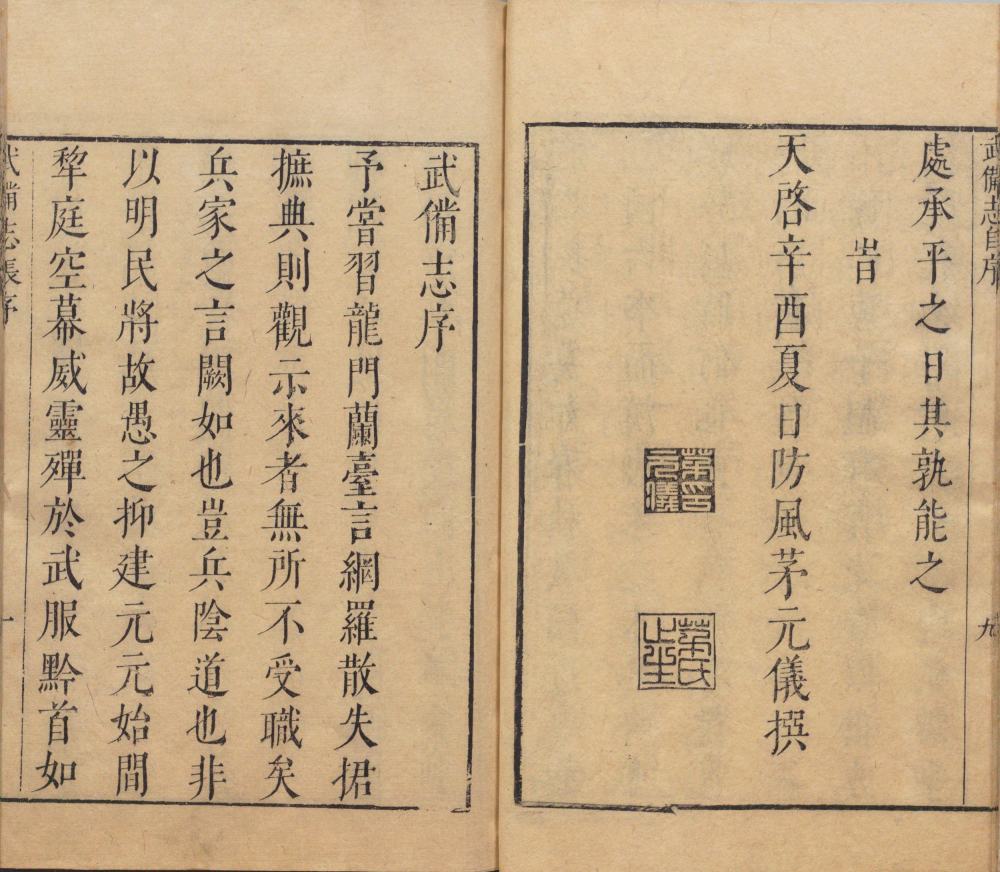 武備志自序
九
處承平之日其孰能之
旹
天啓辛酉夏日防風茅元儀撰
茅印元儀
茅氏止生
武備志序
予嘗習龍門蘭臺言網羅散失捃
摭典則觀示來者無所不受職矣
兵家之言闕如也豈兵陰道也非
以明民將故愚之抑建元元始間
犂庭空幕威靈殫於武服黔首如
武備志張序
一